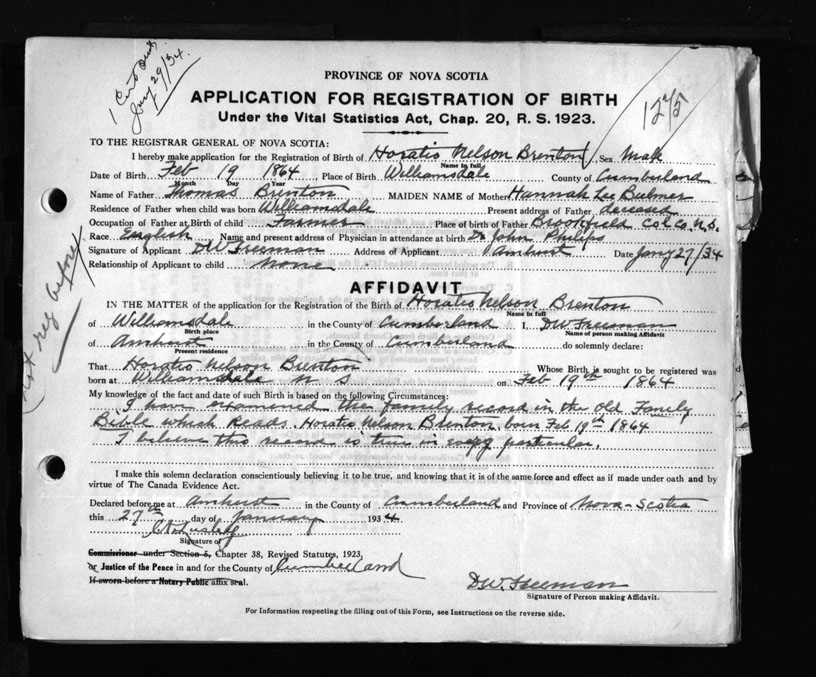 1 Cert
Jany 29/34.
1275
PROVINCE OF NOVA SCOTIA
APPLICATION FOR REGISTRATION OF BIRTH
Under the Vital Statistics Act, Chap. 20, R. S. 1923.
TO THE REGISTRAR GENERAL OF NOVA SCOTIA:
I hereby make application for the Registration of Birth of Horatio Nelson Brenton Sex Male
Name in full
Date of Birth Feb 19 1864 Place of Birth Williamsdale County of Cumberland
Month Day Year
Name of Father Thomas Brenton MAIDEN NAME of Mother Hannah Lee Bulmer
Residence of Father when child was born Williamsdale Present address of Father deceased
Occupation of Father at Birth of child Farmer Place of birth of Father Brookfield Col. Co. N.S.
Race English Name and present address of Physician in attendance at birth Dr John Philips
Signature of Applicant DW Freeman Address of Applicant Amherst Date Jany 27/34
Relationship of Applicant to child None
not reg before
AFFIDAVIT
IN THE MATTER of the application for the Registration of the Birth of Horatio Nelson Brenton
Name in full
of Williamsdale in the County of Cumberland I, DW Freeman
Birth place Name of person making Affidavit
of Amherst in the County of Cumberland do solemnly declare:
Present residence
That Horatio Nelson Brenton Whose Birth is sought to be registered was
born at Williamsdale N S on Feb 19th 1864
My knowledge of the fact and date of such Birth is based on the following Circumstances:
I have examined the family record in the old Family
Bible which reads. Horatio Nelson Brenton born Feb 19th 1864
I believe this record is true in every particular.
I make this solemn declaration conscientiously believing it to be true, and knowing that it is of the same force and effect as if made under oath and by
virtue of The Canada Evidence Act.
Declared before me at Amherst in the County of Cumberland and Province of Nova-Scotia
this 27th day of January 1934
Signature of
Commissioner under Section 5, Chapter 38, Revised Statutes, 1923,
or Justice of the Peace in and for the County of Cumberland
If sworn before a Notary Public affix seal.
DW. Freeman
Signature of Person making Affidavit.
For Information respecting the filling out of this Form, see Instructions on the reverse side.